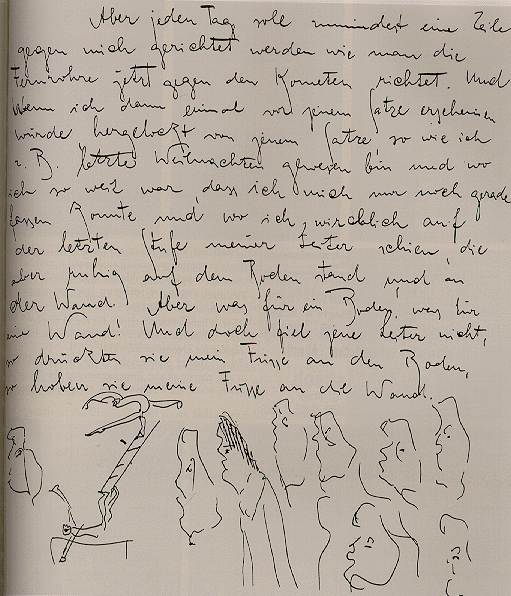 Aber jeden Tag soll mindest eine Zeile
gegen mich gerichtet werden wie man die
Fernrohre jetzt gegen den Kometen richtet. Und
wenn ich dann einmal vor jenem Satze erscheinen
würde hergelockt von jenem Satze, so wie ich
z. B. letzte Weihnachten gewesen bin und wo
ich so weit war, dass ich mich nur noch gerade
fassen konnte und wo ich wirklich auf
der letzten Stufe meiner Leiter schien, die
aber ruhig auf dem Boden stand und an
der Wand. Aber was für ein Boden, was für
eine Wand! Und doch fiel jene Leiter nicht,
so drückten sie meine Füsse an den Boden,
so hoben sie meine Füsse an die Wand.